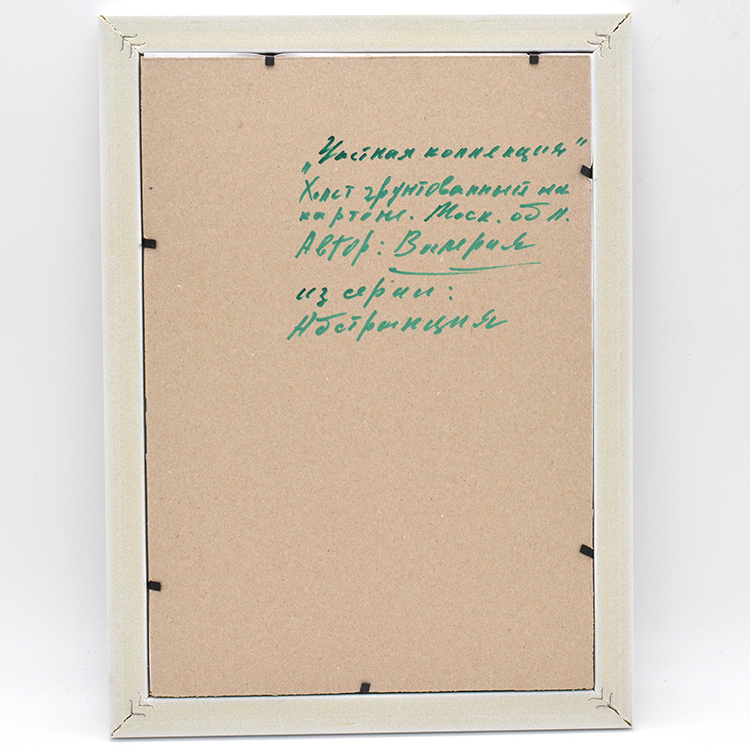 „Частная коллекция"
Холст грунтованный на
картоне. Моск. обл.
Автор: Валерия
из серии:
Абстракция